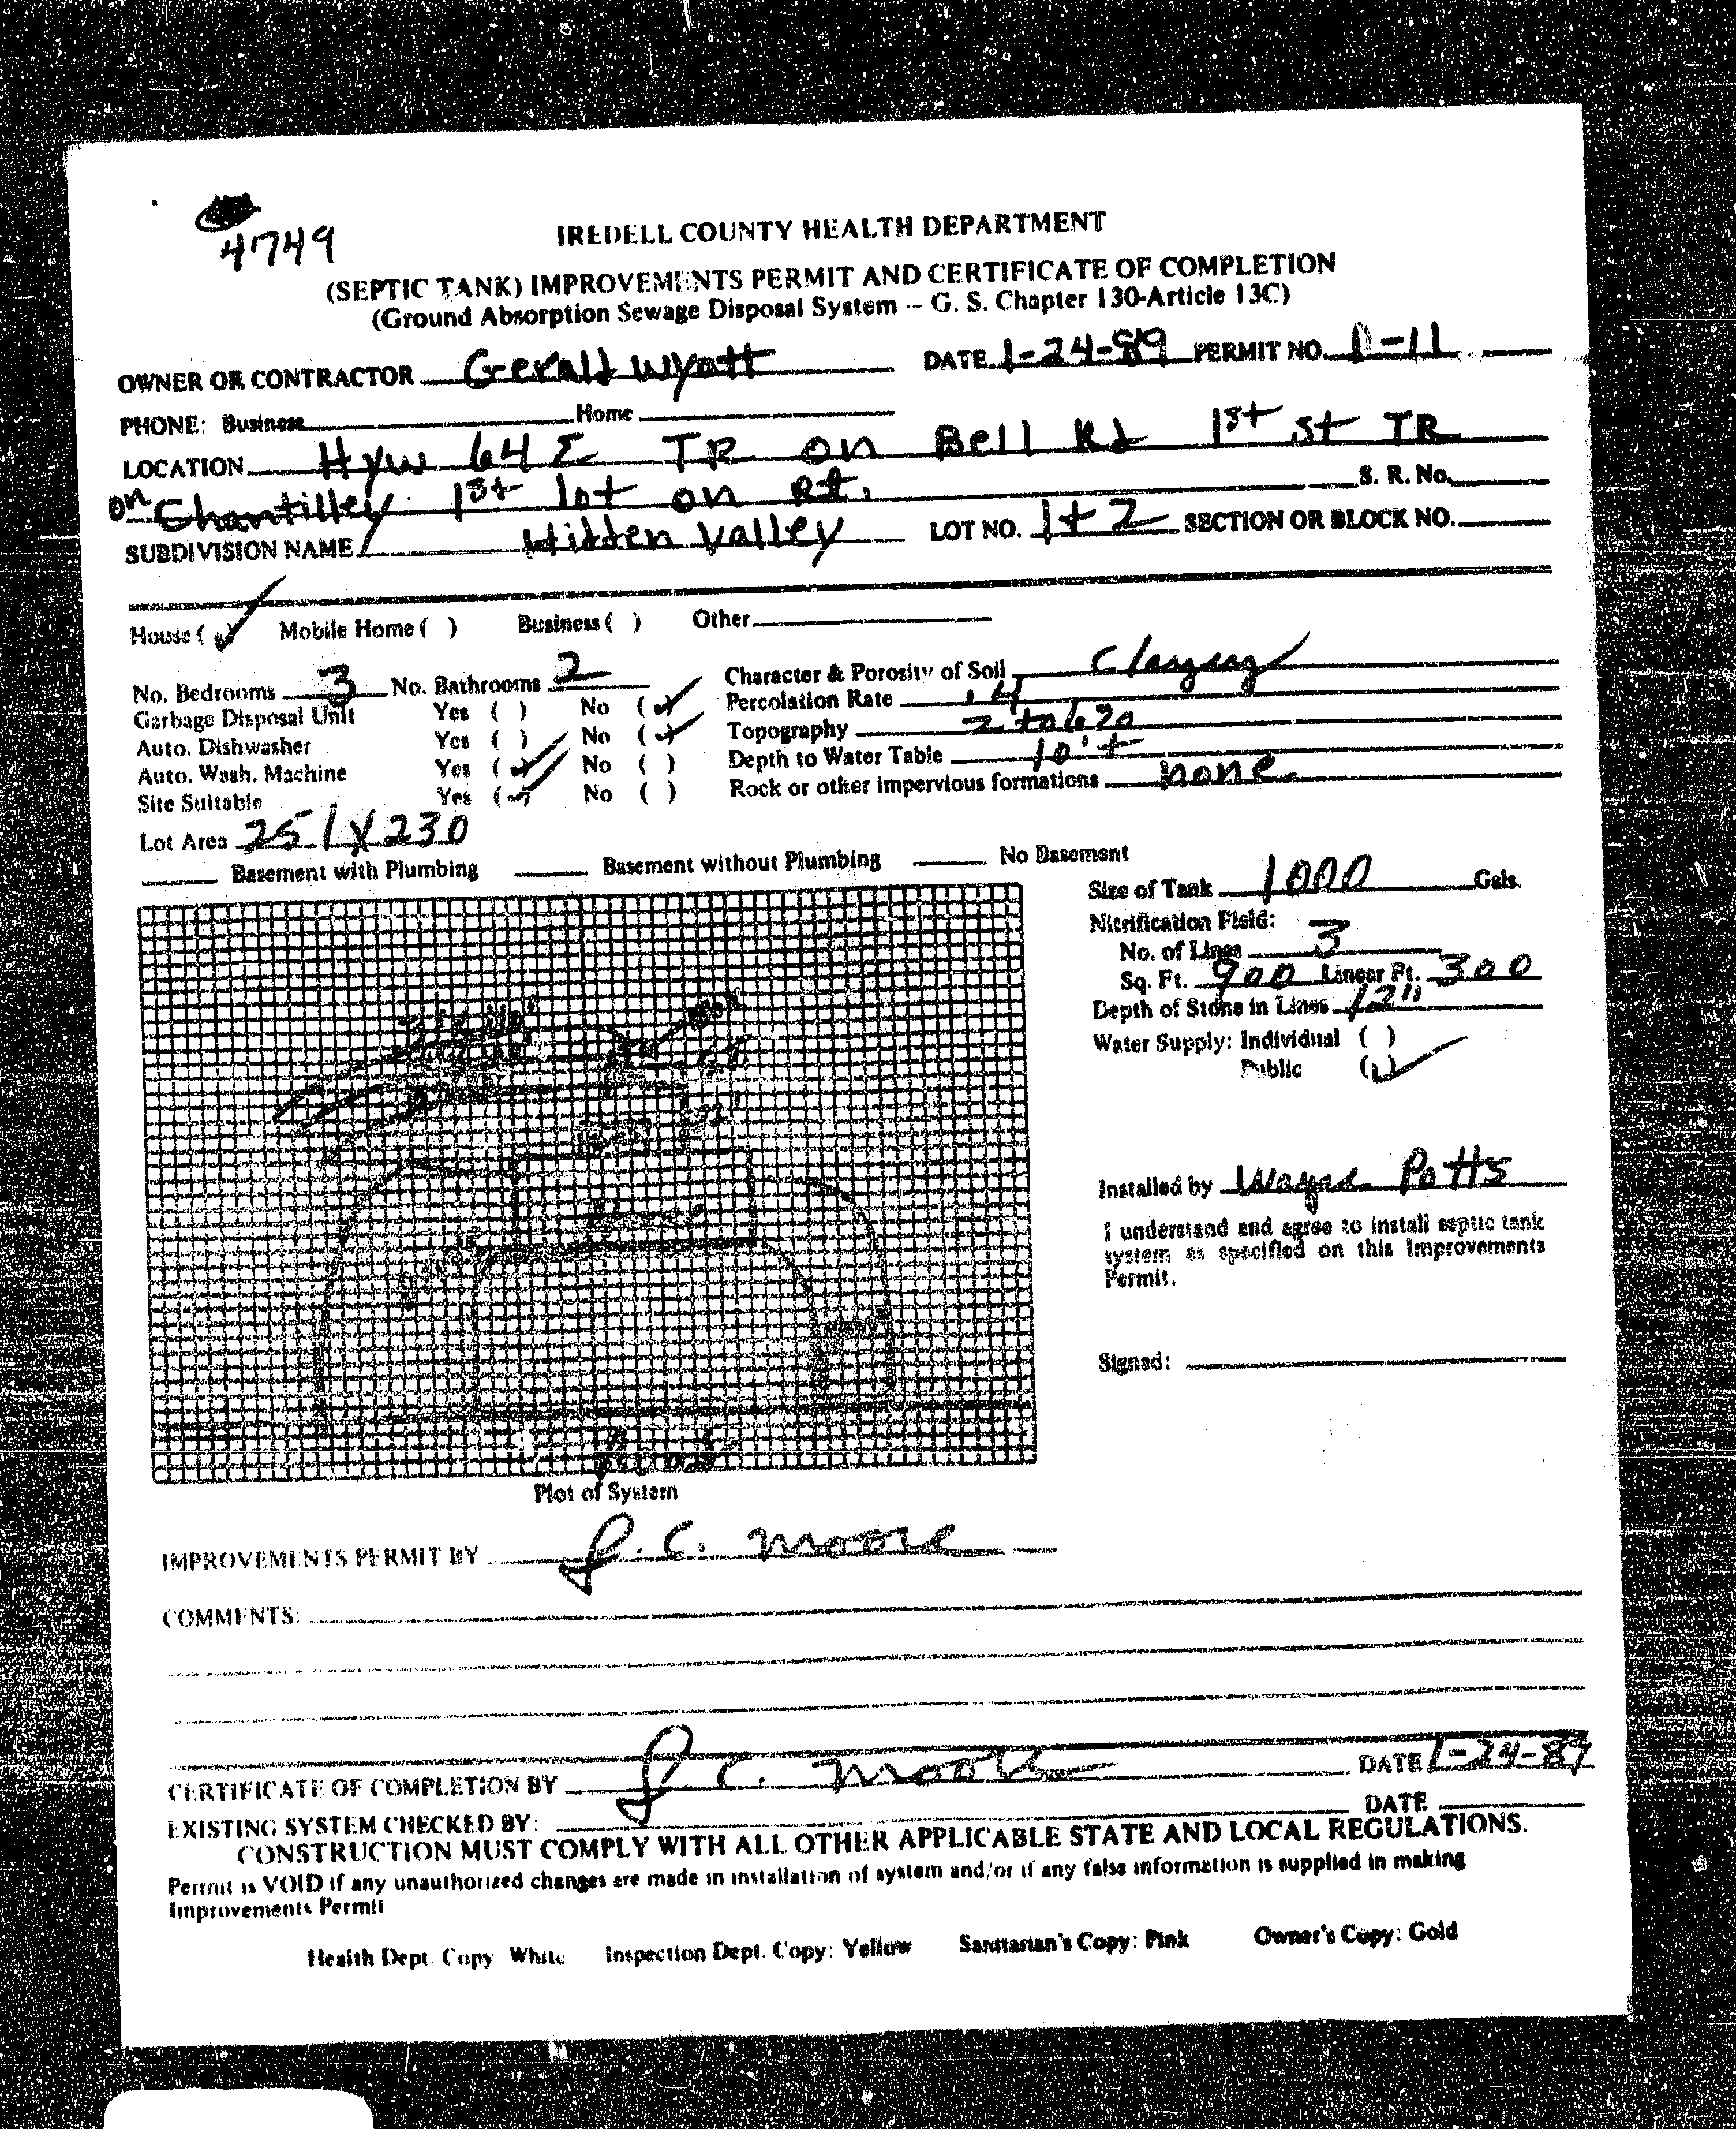 4749
IREDELL COUNTY HEALTH DEPARTMENT
(SEPTIC TANK) IMPROVEMENTS PERMIT AND CERTIFICATE OF COMPLETION
(Ground Absorption Sewage Disposal System -- G. S. Chapter 130-Article 13C)
OWNER OR CONTRACTOR Gerald Wyatt DATE 1-24-89 PERMIT NO. 11-11
PHONE: Business Home
LOCATION Hyw 64 E TR on Bell Rd 1st st TR
on Chantilley 1st lot on Rt. S. R. No.
SUBDIVISION NAME Hidden Valley LOT NO. 1+2 SECTION OR BLOCK NO.
House (✓) Mobile Home ( ) Business ( ) Other
No. Bedrooms 3 No. Bathrooms 2 Character & Porosity of Soil Clayey
Garbage Disposal Unit Yes ( ) No (✓) Percolation Rate .4
Auto. Dishwasher Yes ( ) No (✓) Topography 2 to 6%
Auto. Wash. Machine Yes (✓) No ( ) Depth to Water Table 10'+
Site Suitable Yes (✓) No ( ) Rock or other impervious formations none
Lot Area 251 X 230
Basement with Plumbing Basement without Plumbing No Basement
Size of Tank 1000 Gals.
Nitrification Field:
No. of Lines 3
Sq. Ft. 900 Linear Ft. 300
Depth of Stone in Lines 12"
Water Supply: Individual ( )
Public (✓)
Installed by Wayne Potts
I understand and agree to install septic tank
system as specified on this Improvements
Permit.
Signed:
Plot of System
IMPROVEMENTS PERMIT BY J. C. Moore
COMMENTS:
CERTIFICATE OF COMPLETION BY J. C. Moore DATE 1-24-89
EXISTING SYSTEM CHECKED BY: DATE
CONSTRUCTION MUST COMPLY WITH ALL OTHER APPLICABLE STATE AND LOCAL REGULATIONS.
Permit is VOID if any unauthorized changes are made in installation of system and/or if any false information is supplied in making
Improvements Permit
Health Dept. Copy White Inspection Dept. Copy: Yellow Sanitarian's Copy: Pink Owner's Copy: Gold